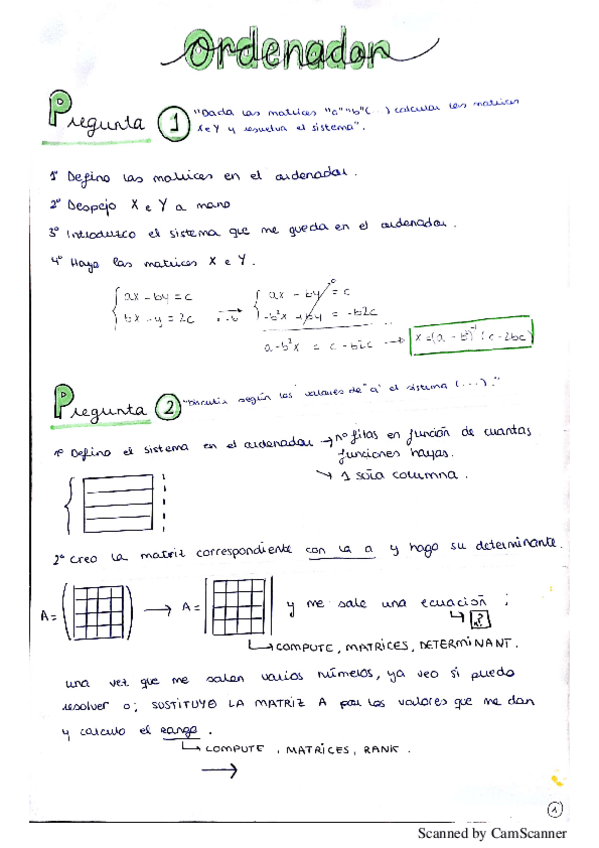 Ordenador
Pregunta 1 "Dada las matrices "a" "b" (...) calcular las matrices
X e Y y resuelva el sistema".
1º Defino las matrices en el ordenador.
2º Despejo X e Y a mano
3º Introduzco el sistema que me queda en el ordenador.
4º Hayo las matrices X e Y.
ax - by = c → ax - by = c
bx - y = 2c · -b -b²x + by = -b2c
a - b²x = c - b2c → x = (a - b²)⁻¹ · (c - 2bc)
Pregunta 2 "Discutir según los valores de "a" el sistema (...)."
1º Defino el sistema en el ordenador → nº filas en función de cuantas
funciones hayas.
↘ 1 sola columna.
2º Creo la matriz correspondiente con la a y hago su determinante.
A = → A = y me sale una ecuación ;
↳ a?
↳ COMPUTE, MATRICES, DETERMINANT.
una vez que me salen varios números, ya veo si puedo
resolver o; SUSTITUYO LA MATRIZ A por los valores que me dan
y calculo el rango.
↳ COMPUTE, MATRICES, RANK.
→
1
Scanned by CamScanner